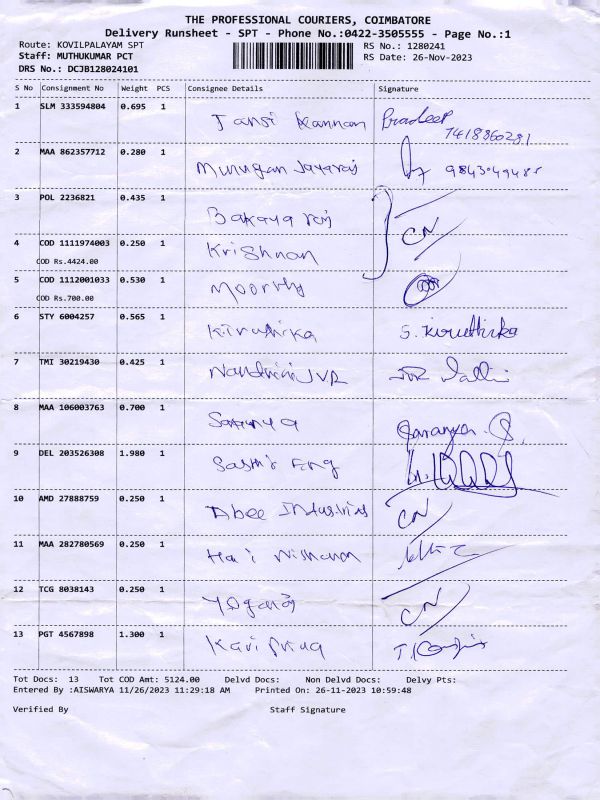 THE PROFESSIONAL COURIERS, COIMBATORE
Delivery Runsheet - SPT - Phone No.:0422-3505555 - Page No.:1
Route: KOVILPALAYAM SPT RS No.: 1280241
Staff: MUTHUKUMAR PCT RS Date: 26-Nov-2023
DRS No.: DCJB128024101
S No Consignment No Weight PCS Consignee Details Signature
1 SLM 333594804 0.695 1 Jansi Kannan Pradeep
7418860281
2 MAA 862357712 0.280 1 Murugan Jayaraj
3 POL 2236821 0.435 1
4 COD 1111974003 0.250 1 Krishnan CN
COD Rs.4424.00
5 COD 1112001033 0.530 1 Moorthy
COD Rs.700.00
6 STY 6004257 0.565 1 Kiruthika S. Kiruthika
7 TMI 30219430 0.425 1 Nandhini JVR
8 MAA 106003763 0.700 1 Saranya Saranya. S.
9 DEL 203526308 1.980 1 Eng
10 AMD 27888759 0.250 1 Abee Industries CN
11 MAA 282780569 0.250 1
12 TCG 8038143 0.250 1 CN
13 PGT 4567898 1.300 1 Kavi Priya
Tot Docs: 13 Tot COD Amt: 5124.00 Delvd Docs: Non Delvd Docs: Delvy Pts:
Entered By :AISWARYA 11/26/2023 11:29:18 AM Printed On: 26-11-2023 10:59:48
Verified By Staff Signature